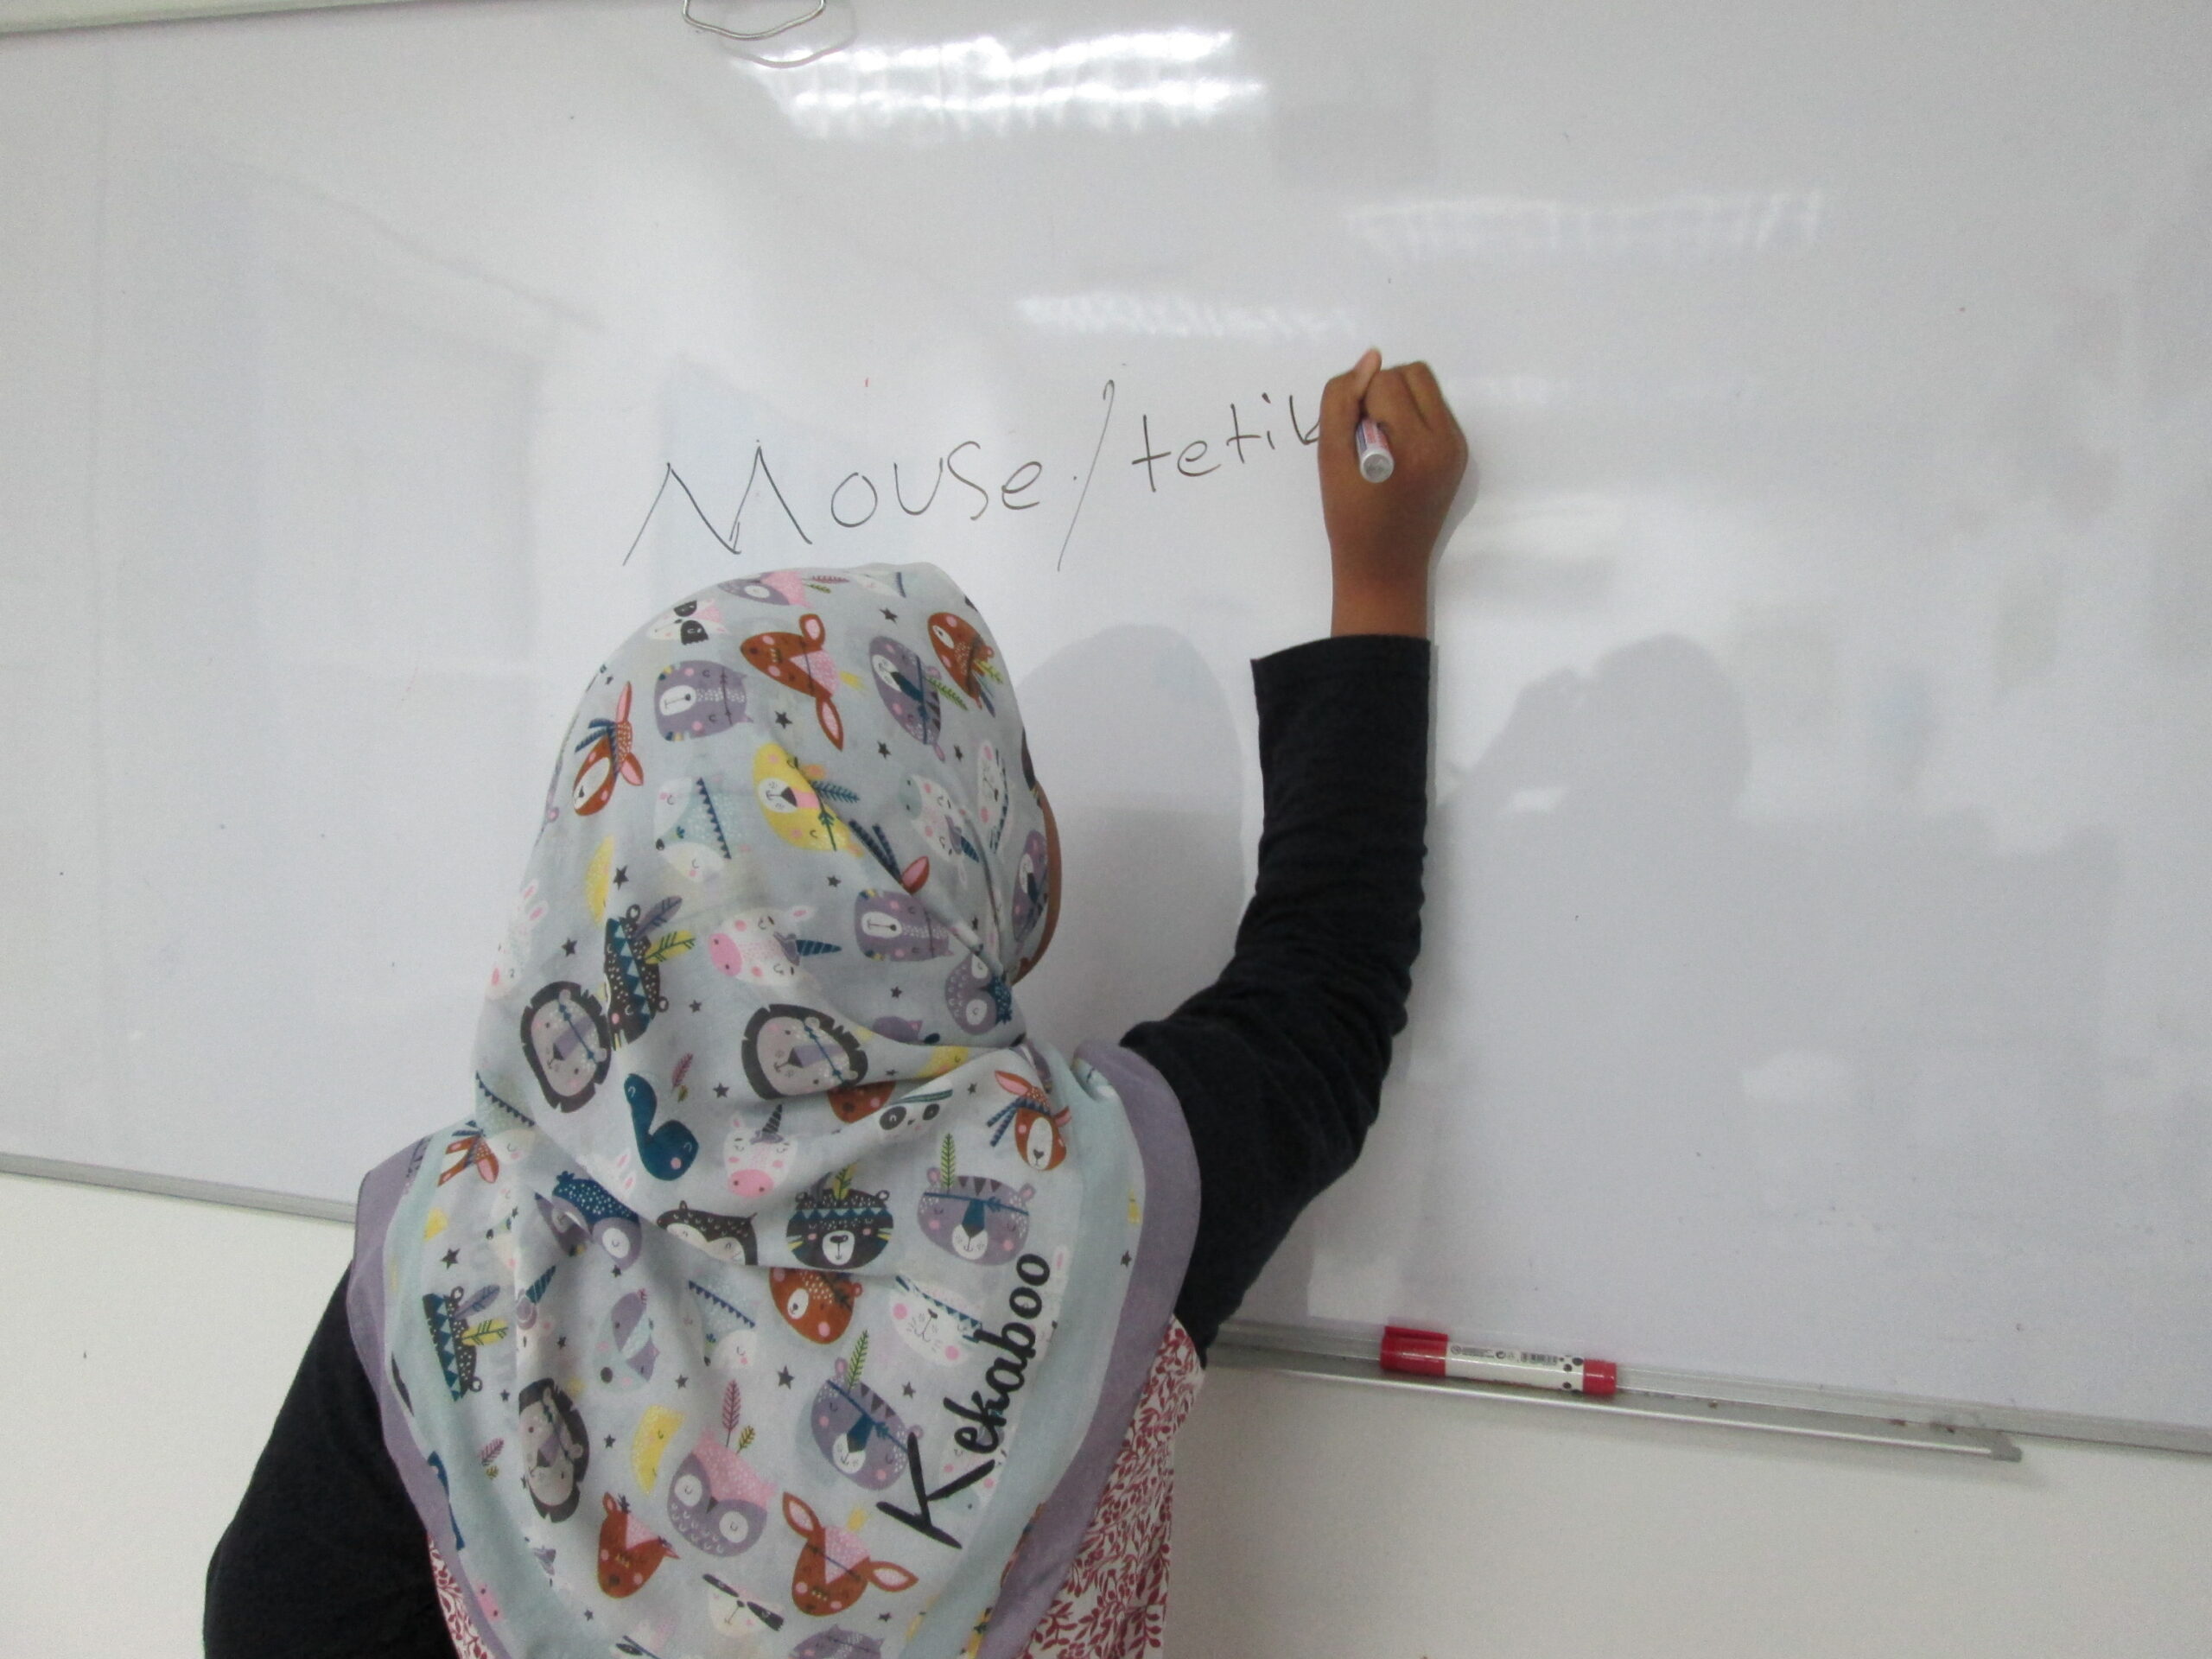 Mouse/tetik
Kekaboo